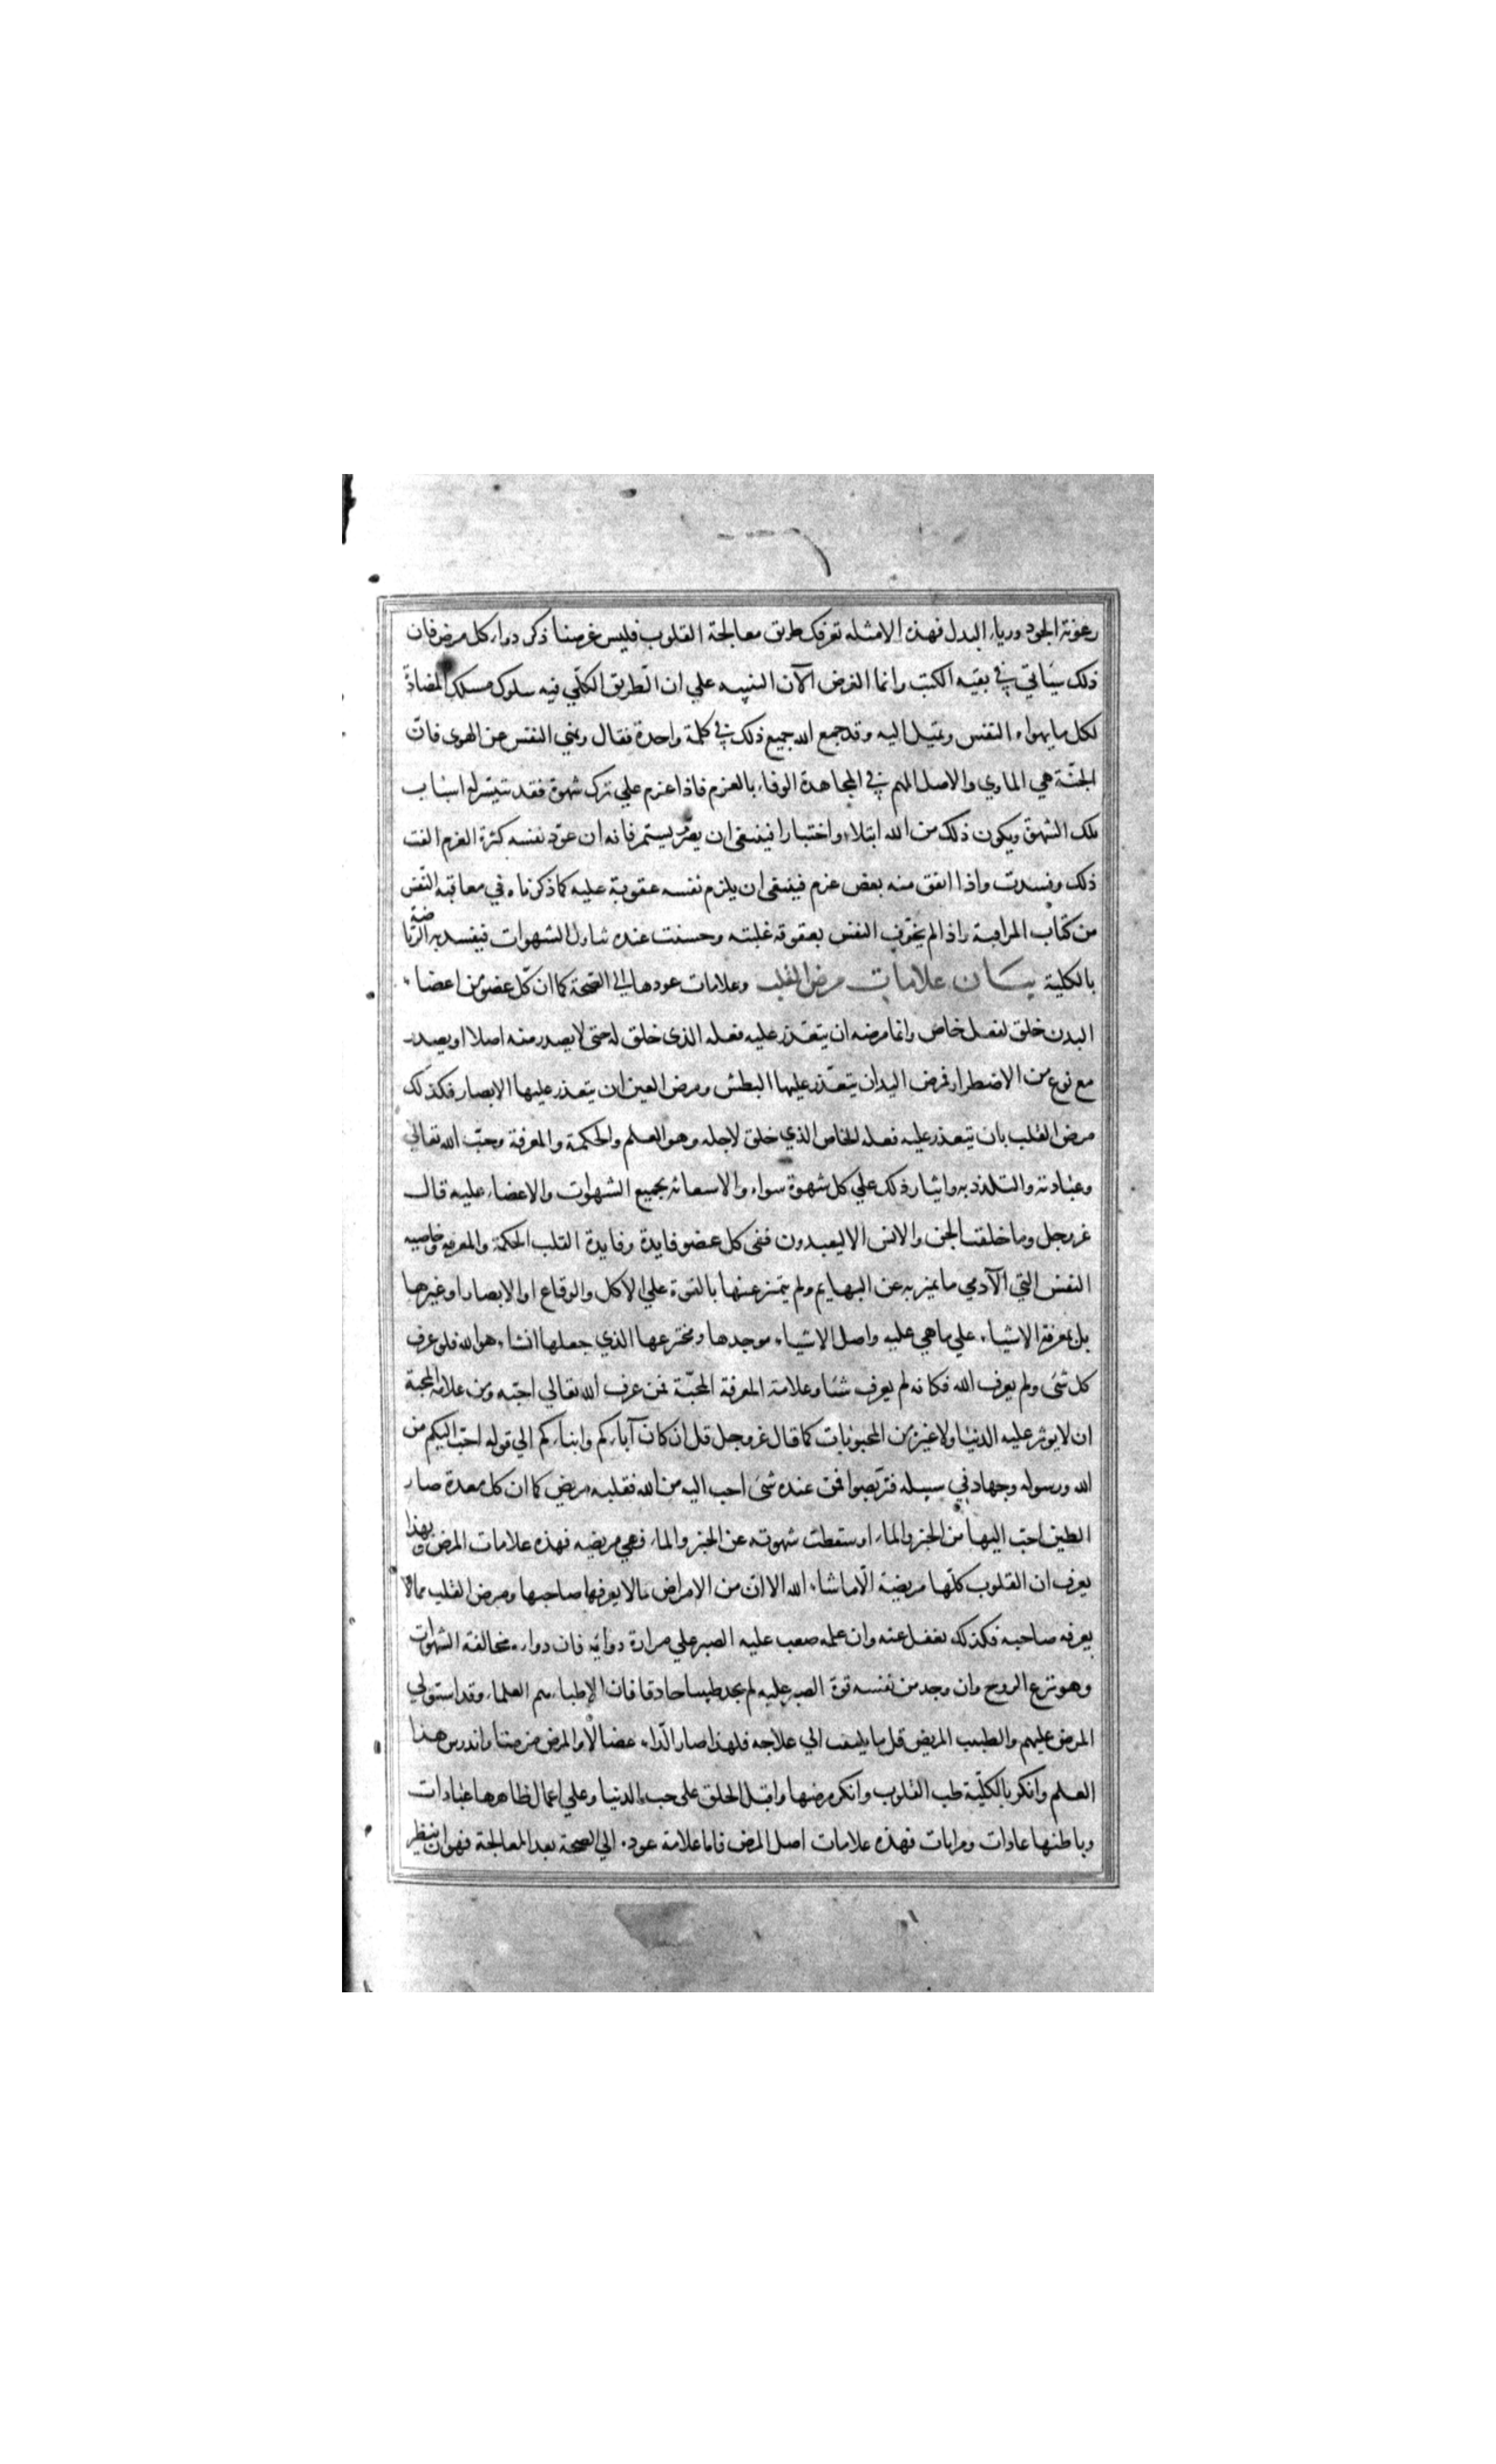 رعونة الجود ورياء البدل فهذه الامثله تعرفك طريق معالجة القلوب فليس غرضنا ذكر دواء كل مرض فان
ذلك سياتي في بقيه الكتب وانما الغرض الآن التنبيه علي ان الطريق الكلّي فيه سلوك مسلك المضادّ
لكل ما يهواه النفس وتميل اليه وقد جمع الله جميع ذلك في كلمة واحدة فقال ونهي النفس عن الهوى فانّ
الجنّة هي الماوي والاصل المهم في المجاهدة الوفاء بالعزم فاذا عزم علي ترك شهوة فقد تتيسر له اسباب
تلك الشهوة ويكون ذلك من الله ابتلاء واختبارا فينبغى ان يصبر يستمر فانه ان عوّد نفسه كثرة العزم الفت
ذلك وفسدت واذا اتفق منه بعض عزم فينبغى ان يلزم نفسه عقوبة عليه كما ذكرناه في معاقبة النّفس
من كتاب المراقبة واذا لم يخوّف النفس بعقوقه غلبته وحسنت عنده تناول الشهوات فيفسد به الرّياضة
بالكلية بيان علامات مرض القلب وعلامات عودها الي الصّحة كما ان كلّ عضو من اعضاء
البدن خلق لفعل خاص وانما مرضه ان يتعّذر عليه فعله الذى خلق له حتى لا يصدر منه اصلا او يصدر
مع نوع من الاضطرار فمرض اليد ان يتعّذر عليها البطش ومرض العين ان يتعذر عليها الابصار فكذلك
مرض القلب بان يتعذر عليه فعله الخاص الذي خلق لاجله وهو العلم والحكمة والمعرفة وحبّ الله تعالي
وعبادته والتلذذ به وايثار ذلك علي كل شهوة سواه والاستعانه بجميع الشهوات والاعضاء عليه قال
عز وجل وما خلقت الجن والانس الا ليعبدون ففى كل عضو فايدة وفايدة القلب الحكمة والمعرفة وخاصيه
النفس التي الآدمي ما تميز به عن البهايم ولم يتميز عنها بالقوة علي الاكل والوقاع او الابصار او غيرها
بل بمعرفة الاشياء علي ما هي عليه واصل الاشياء موجدها ومخترعها الذي جعلها انشاء هو الله فلو عرف
كل شى ولم يعرف الله فكانه لم يعرف شئا وعلامة المعرفة المحبّة فمن عرف الله تعالي احبّه ومن علامة المحبة
ان لا يوثر عليه الدنيا ولا غيره من المحبوبات كما قال عز وجل قل ان كان آباؤكم وابناؤكم الي قوله احبّ اليكم من
الله ورسوله وجهاد في سبيله فتربّصوا فمن عنده شى احب اليه من الله فقلبه مريض كما ان كل معدة صار
الطين احبّ اليها من الخبز والماء او سقطت شهوته عن الخبز والماء فهي مريضه فهذه علامات المرض وبهذا
يعرف ان القلوب كلّها مريضة الّا ما شاء الله الا انّ من الامراض مالا يعرفها صاحبها ومرض القلب ممالا
يعرفه صاحبه فكذلك تغفل عنه وان علمه صعب عليه الصبر علي مرارة دوائه فان دواءه مخالفة الشهوات
وهو نزع الروح وان وجد من نفسه قوة الصبر عليه لم يجد طبيبا حاذقا فان الاطباء هم العلماء وقد استولي
المرض عليهم والطبيب المريض قل ما يلتفت الي علاجه فلهذا صار الدّاء عضالا والمرض مزمنا واندرس هذا
العلم وانكر بالكلّية طب القلوب وانكر مرضها واقبل الخلق على حب الدنيا وعلي اعمال ظاهرها عبادات
وباطنها عادات ومرايات فهذه علامات اصل المرض فاما علامة عوده الي الصحة بعد المعالجة فهو ان ينظر